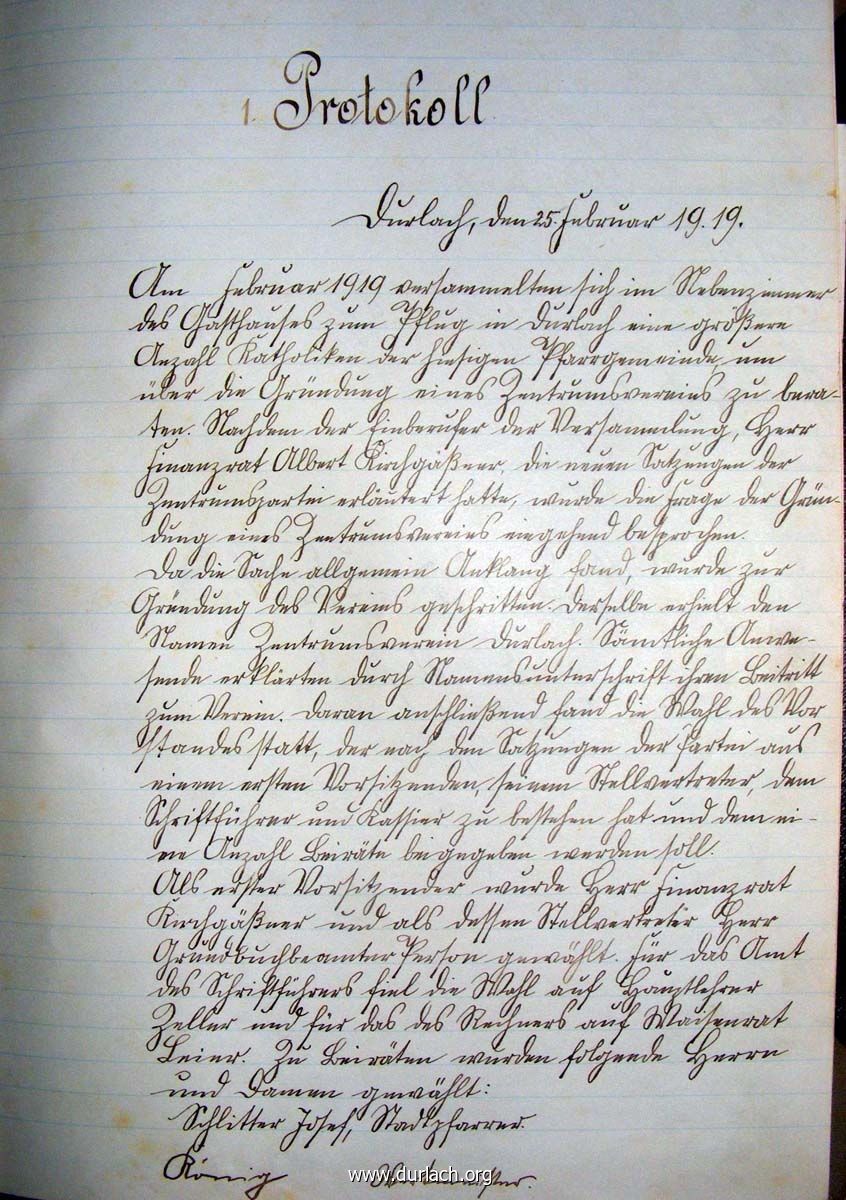 1. Protokoll
Durlach, den 25. Februar 19.19.
Am Februar 1919 versammelten sich im Nebenzimmer
des Gasthauses zum Pflug in Durlach eine größere
Anzahl Katholiken der hiesigen Pfarrgemeinde, um
über die Gründung eines Zentrumsvereins zu bera-
ten. Nachdem der Einberufer der Versammlung, Herr
Finanzrat Albert Kirchgäßner, die neuen Satzungen der
Zentrumspartei erläutert hatte, wurde die Frage der Grün-
dung eines Zentrumsvereins eingehend besprochen.
Da die Sache allgemein Anklang fand, wurde zur
Gründung des Vereins geschritten. Derselbe erhielt den
Namen Zentrumsverein Durlach. Sämtliche Anwe-
sende erklärten durch Namensunterschrift ihren Beitritt
zum Verein. Daran anschließend fand die Wahl des Vor
standes statt, der nach den Satzungen der Partei aus
einem ersten Vorsitzenden, seinem Stellvertreter, dem
Schriftführer und Kassier zu bestehen hat und dem ei-
ne Anzahl Beiräte beigegeben werden soll.
Als erster Vorsitzender wurde Herr Finanzrat
Kirchgäßner und als dessen Stellvertreter Herr
Grundbuchbeamter Person gewählt. Für das Amt
des Schriftführers fiel die Wahl auf Hauptlehrer
Zeller und für das des Rechners auf Waisenrat
Leier. Zu Beiräten wurden folgende Herrn
und Damen gewählt:
Schlitter Josef, Stadtpfarrer.
König
www.durlach.org